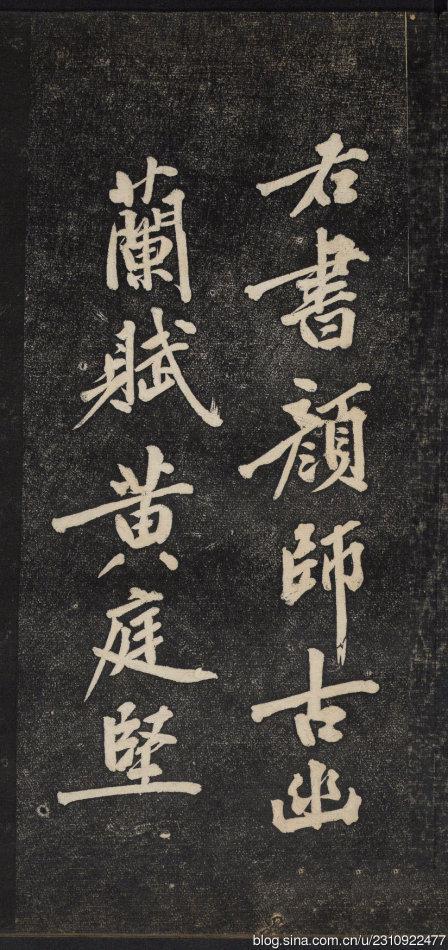 右書顏師古幽
蘭賦黃庭堅
blog.sina.com.cn/u/2310922477